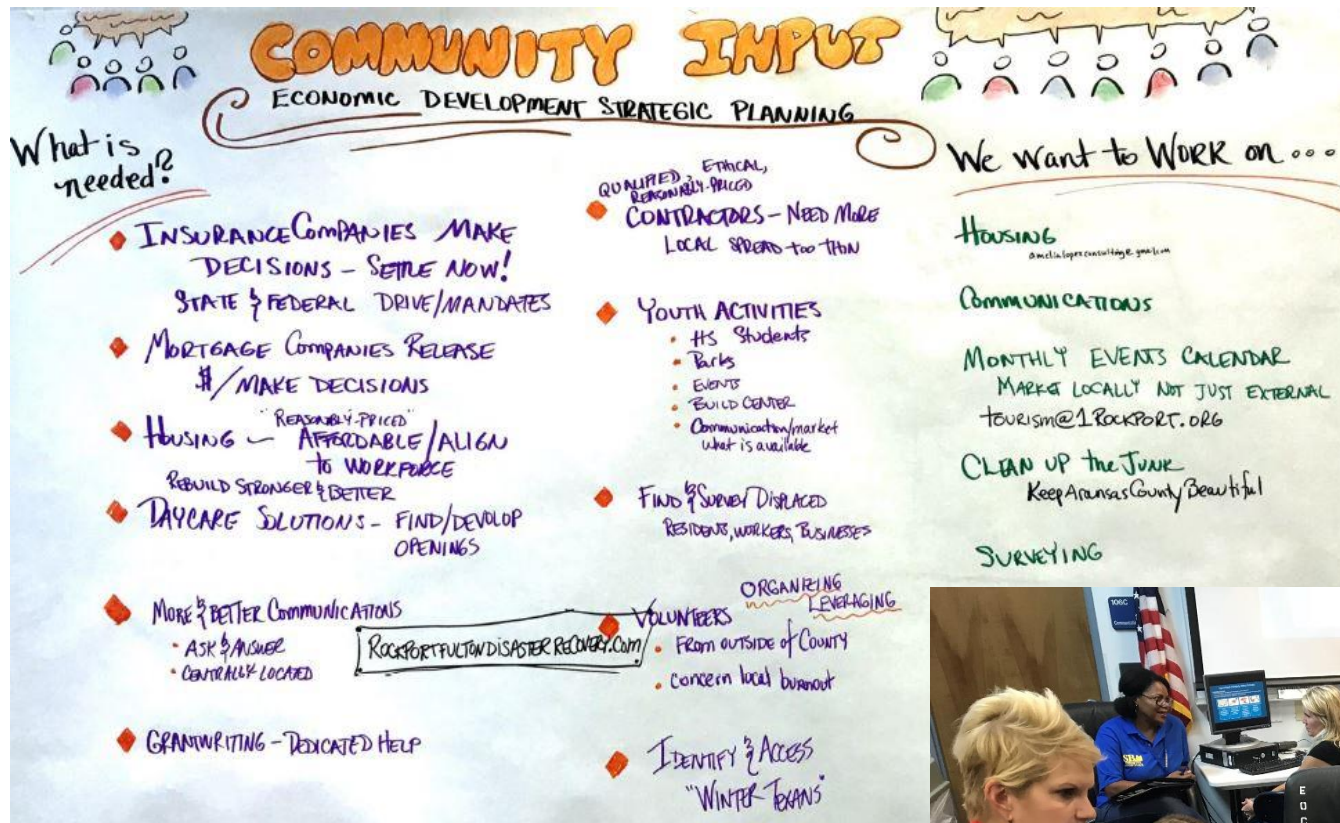 COMMUNITY INPUT
ECONOMIC DEVELOPMENT STRATEGIC PLANNING
What is
needed?
INSURANCE COMPANIES MAKE
DECISIONS – SETTLE NOW!
STATE & FEDERAL DRIVE/MANDATES
MORTGAGE COMPANIES RELEASE
$/MAKE DECISIONS
"REASONABLY-PRICED"
HOUSING – AFFORDABLE/ALIGN
to WORKFORCE
REBUILD STRONGER & BETTER
DAYCARE SOLUTIONS – FIND/DEVOLOP
OPENINGS
MORE & BETTER COMMUNICATIONS
• ASK & ANSWER
• CENTRALLY LOCATED
ROCKPORTFULTONDISASTERRECOVERY.Com
GRANTWRITING – DEDICATED HELP
QUALIFIED, ETHICAL,
REASONABLY-PRICED
CONTRACTORS – NEED MORE
LOCAL SPREAD too THIN
YOUTH ACTIVITIES
• HS Students
• Parks
• EVENTS
• BUILD CENTER
• Communication/market
what is available
FIND & SURVEY DISPLACED
RESIDENTS, WORKERS, BUSINESSES
ORGANIZING
LEVERAGING
VOLUNTEERS
• FROM OUTSIDE of COUNTY
• concern local burnout
IDENTIFY & ACCESS
"WINTER TEXANS"
We want to WORK on...
HOUSING
amelialopezconsulting@gmail.com
COMMUNICATIONS
MONTHLY EVENTS CALENDAR
MARKET LOCALLY NOT JUST EXTERNAL
tourism@1ROCKPORT.ORG
CLEAN UP the JUNK
KeepAransasCountyBeautiful
SURVEYING
106C
EOC